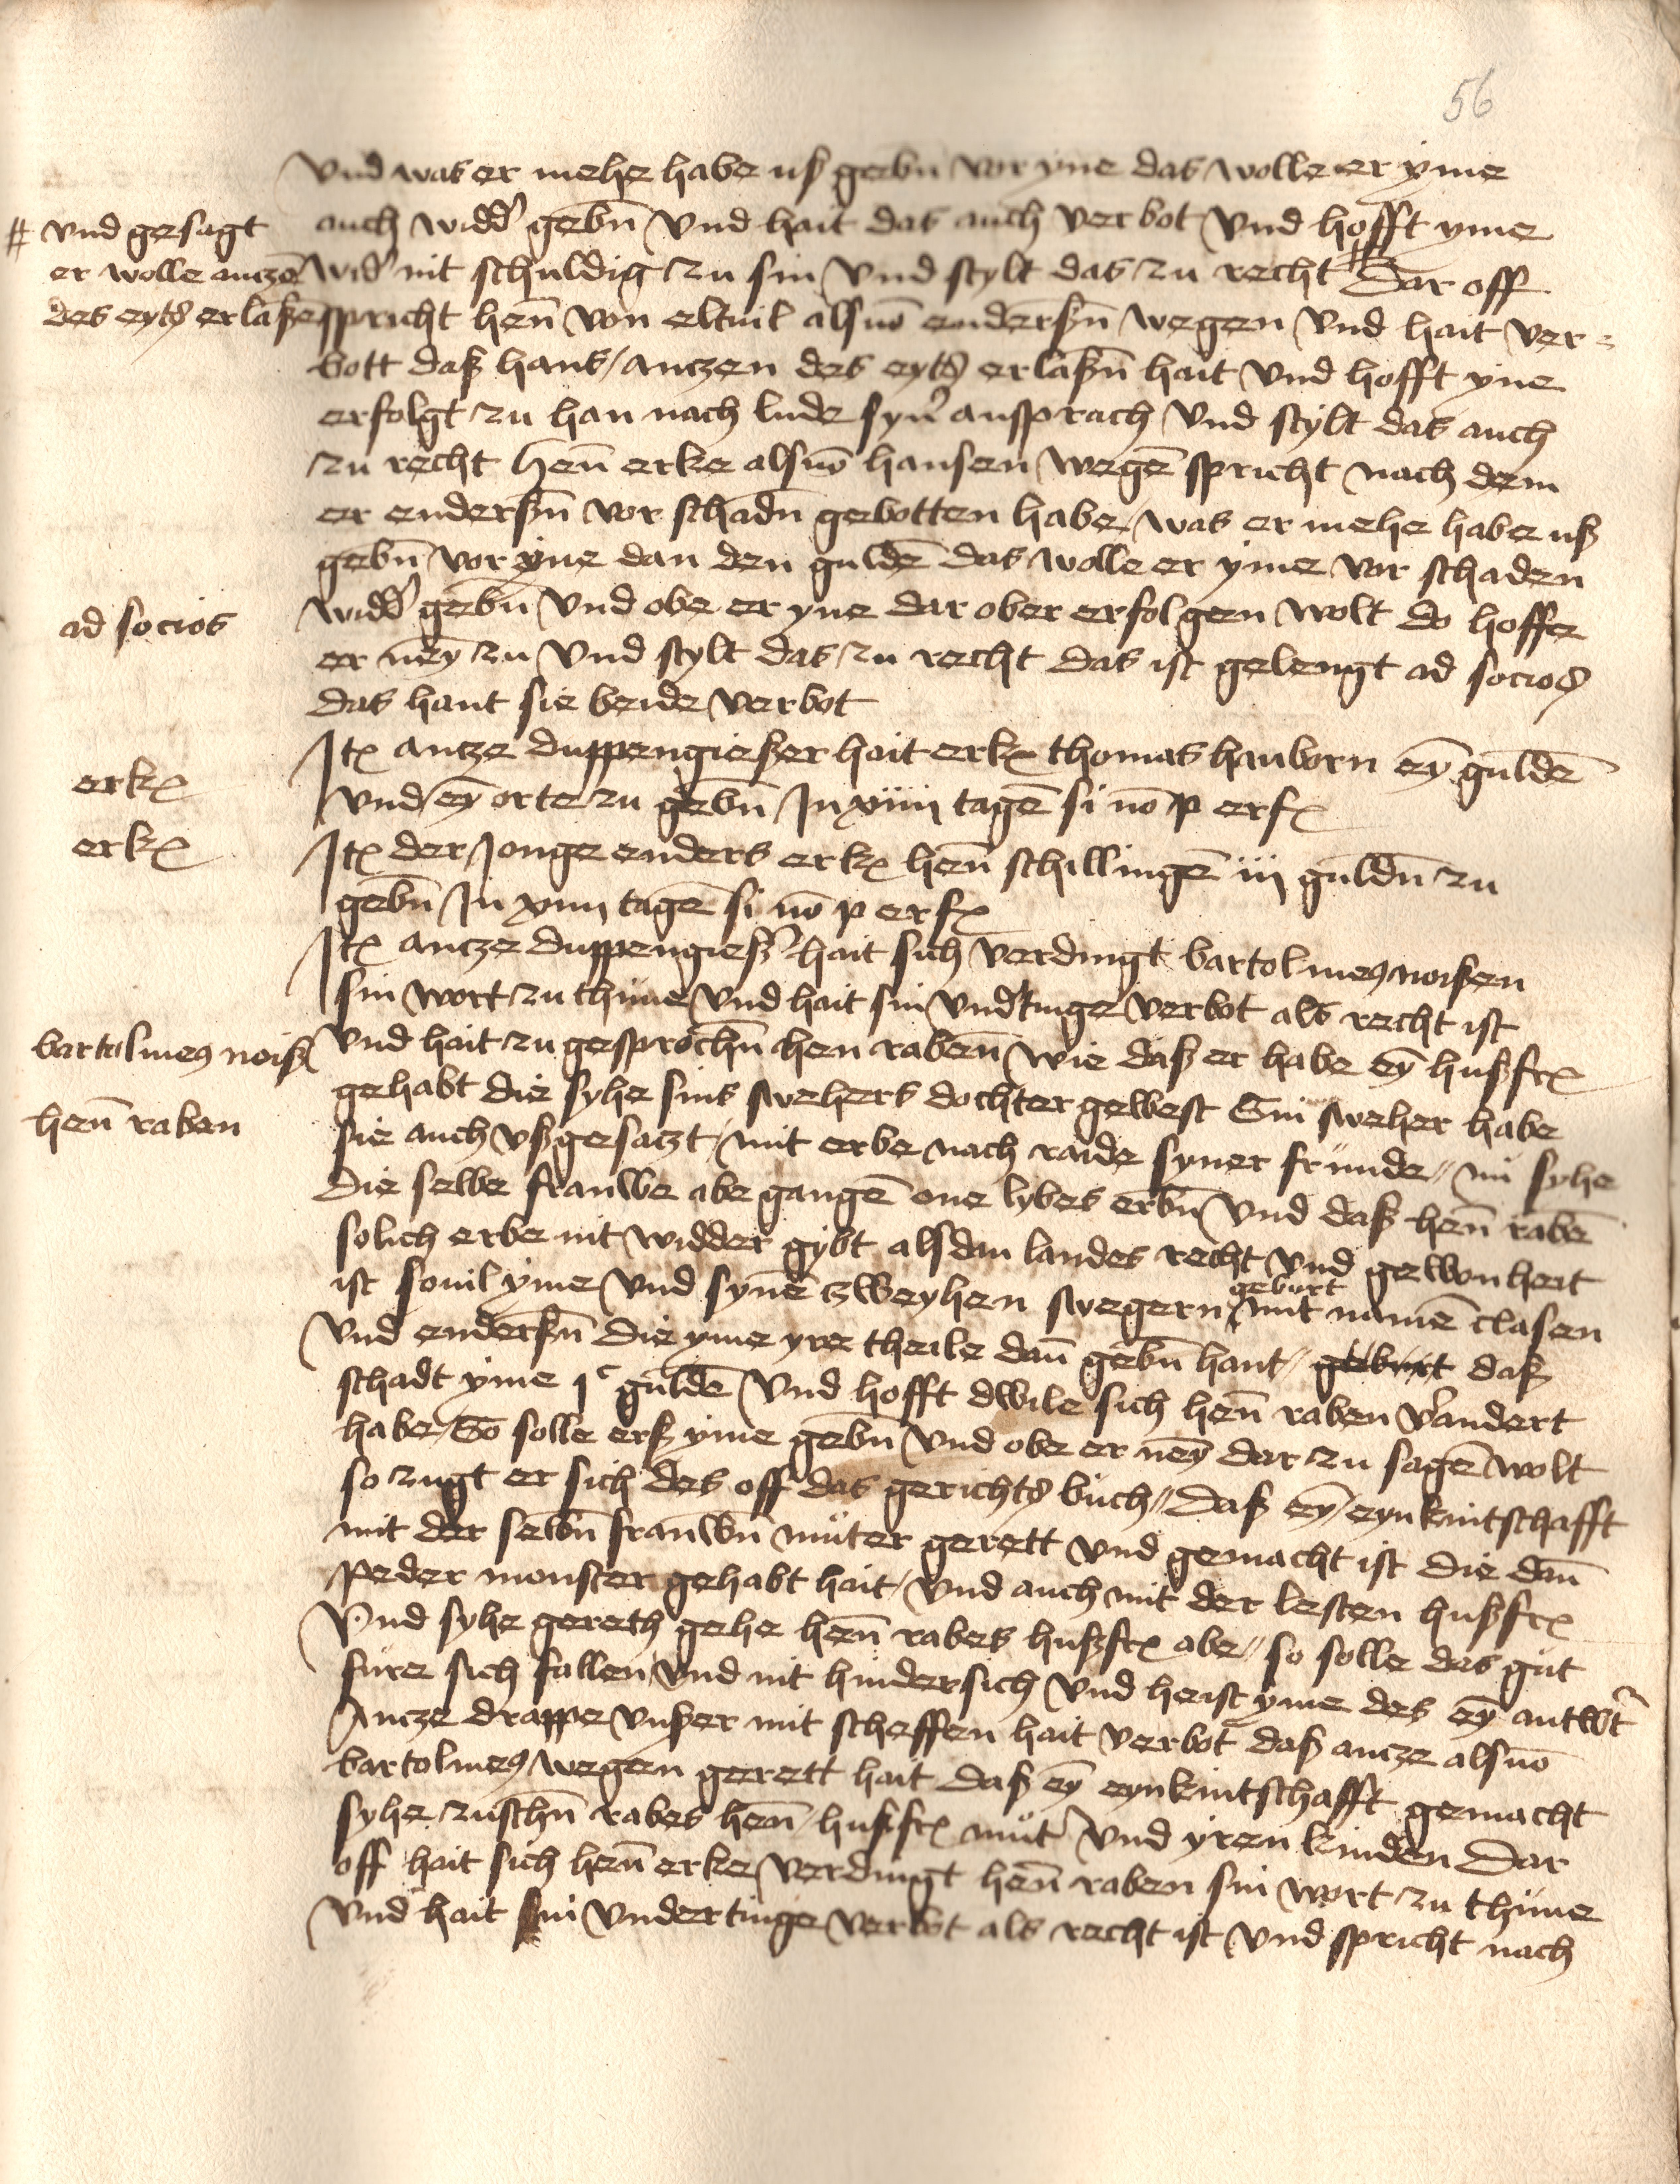 56
vnd was er mehe habe uß gebn̄ vor yne das wolle er yme
auch widd' gebn̄ vnd hait das auch verbot vnd hofft yme
# vnd gesagt
er wolle anczē
des eyts erlaßē
wid' nit schuldig zu sin vnd stylt das zu recht # Dar off
spricht hen̄ von eltuil als vō enderßn̄ wegen vnd hait ver-
bott daß hans anczen des eyts erlaßn̄ hait vnd hofft yne
erfolgt zu han nach lude syn' ansprach vnd stylt das auch
zu recht hen̄ erke als vō hansen wegē spricht nach dem
er enderßn̄ vor schadn̄ gebotten habe was er mehe habe uß
gebn̄ vor yne dan den guldē das wolle er yme vor schaden
ad socios
widd' gebn̄ vnd obe er yne dar ober erfolgen wolt do hoffe
er ney zu vnd stylt das zu recht das ist gelengt ad socios
das hant sie beide verbot
erk
Itꝫ ancze duppengießer hait erk thomas hanborn ey guldē
vnd ey orte zu gebn̄ In xiiij tagē si nō p erf
erk
Itꝫ der Jonge enders erk hen̄ schillingē iij guldn̄ zu
gebn̄ In xiiij tagē si nō p erf
Itꝫ ancze duppengieß' hait sich verdingt bartolmeꝰ noißen
sin wort zu thune vnd hait sin vnd'tinge verbot als recht ist
bartolmeꝰ noiß
hen̄ raben
vnd hait zu gesprochn̄ hen raben̄ wie daß er habe ey hußfr
gehabt die syhe sins swehers dochter gewest Sin sweher habe
sie auch vßgesaczt mit erbe nach raide syner frunde // nu syhe
die selbe frauwe abe gangē one lybes erbn̄ vnd daß hen̄ rabē
solich erbe nit widder gybt als dan landes recht vnd gewonheit
ist souil yme vnd synē zweyhen swegern gebort mit namē clasen
vnd enderßn̄ die yme yre theile dan̄ gebn̄ hant / gebort daß
schadt yme jᶜ guldē vnd hofft dwile sich hen̄ raben v'andert
habe So solle erß yme gebn̄ vnd obe er ney dar zu sagē wolt
so zugt er sich des off das gerichts buch // daß ey eynkintschafft
mit der selbn̄ frauwn̄ muter gerett vnd gemacht ist die dan̄
peder monster gehabt hait / vnd auch mit der lesten hußfr
vnd syhe gereth gehe hen̄ rabes hußfr abe // so solle das gut
fure sich fallen vnd nit hindersich vnd heist yme des ey antwt'
Ancze drappe vnßer mit scheffen hait verbot daß ancze als vō
bartolmeꝰ wegen gerett hait daß ey eynkintschafft gemacht
syhe zuschn̄ rabes hen̄ hußfr mut' vnd yren kinden Dar
off hait sich hen̄ erke verdingt hen̄ raben sin wort zu thune
vnd hait sin vndertinge verbot als recht ist vnd spricht nach